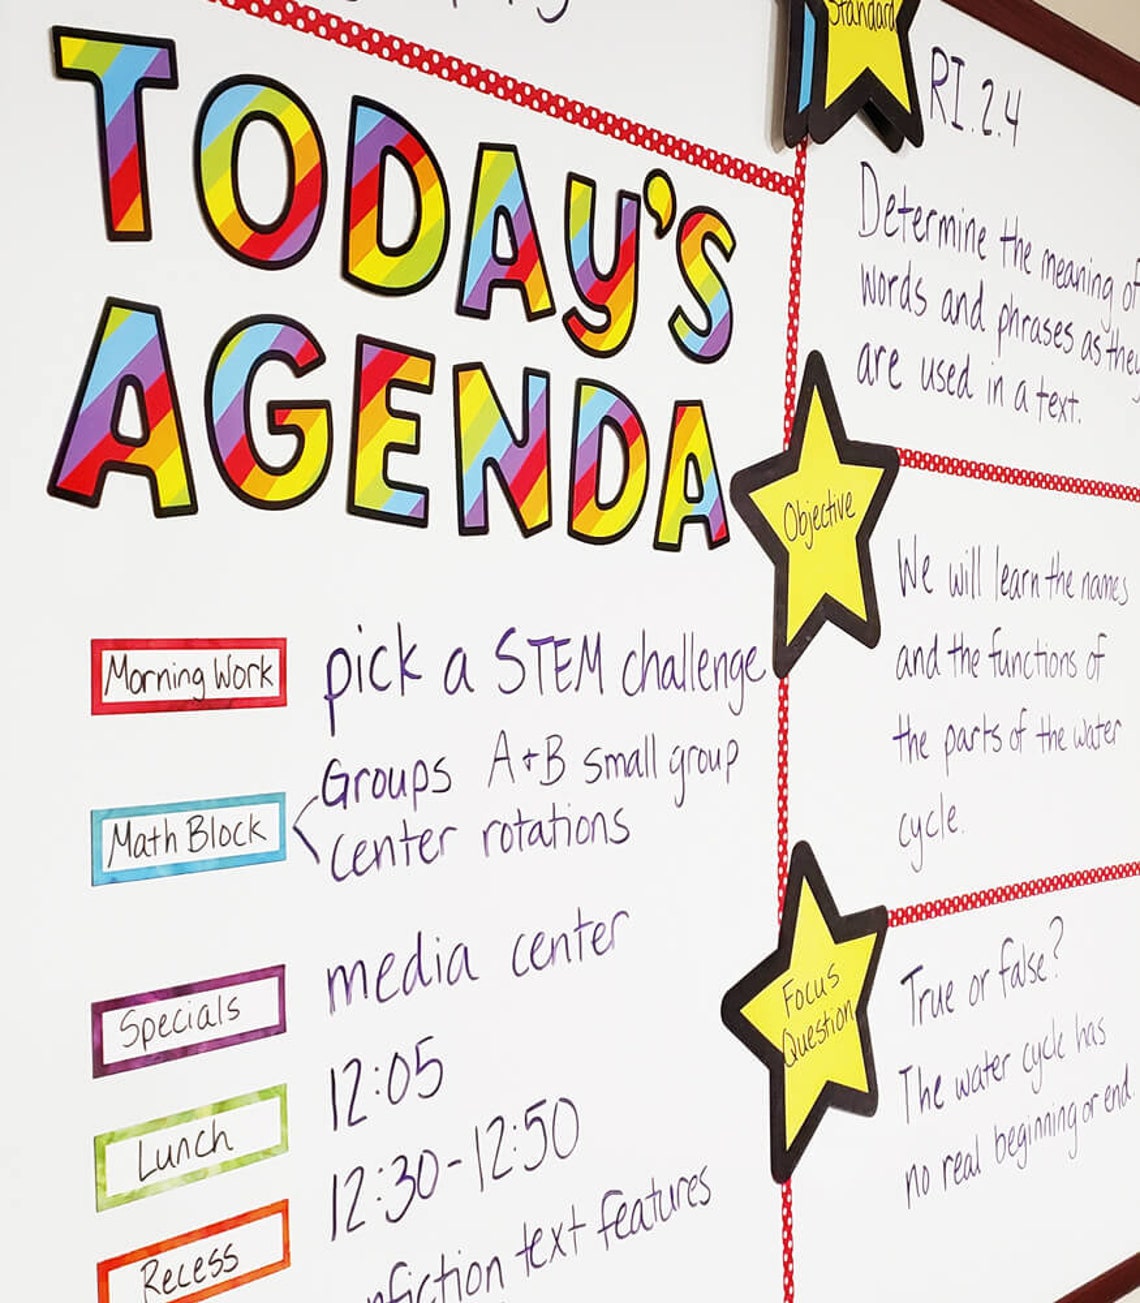 TODAY'S
AGENDA
Morning Work
pick a STEM challenge
Math Block
Groups A+B small group
center rotations
Specials
media center
Lunch
12:05
Recess
12:30-12:50
text features
Standard
RI.2.4
Determine the meaning of
words and phrases as they
are used in a text.
Objective
We will learn the names
and the functions of
the parts of the water
cycle.
Focus
Question
True or false?
The water cycle has
no real beginning or end.